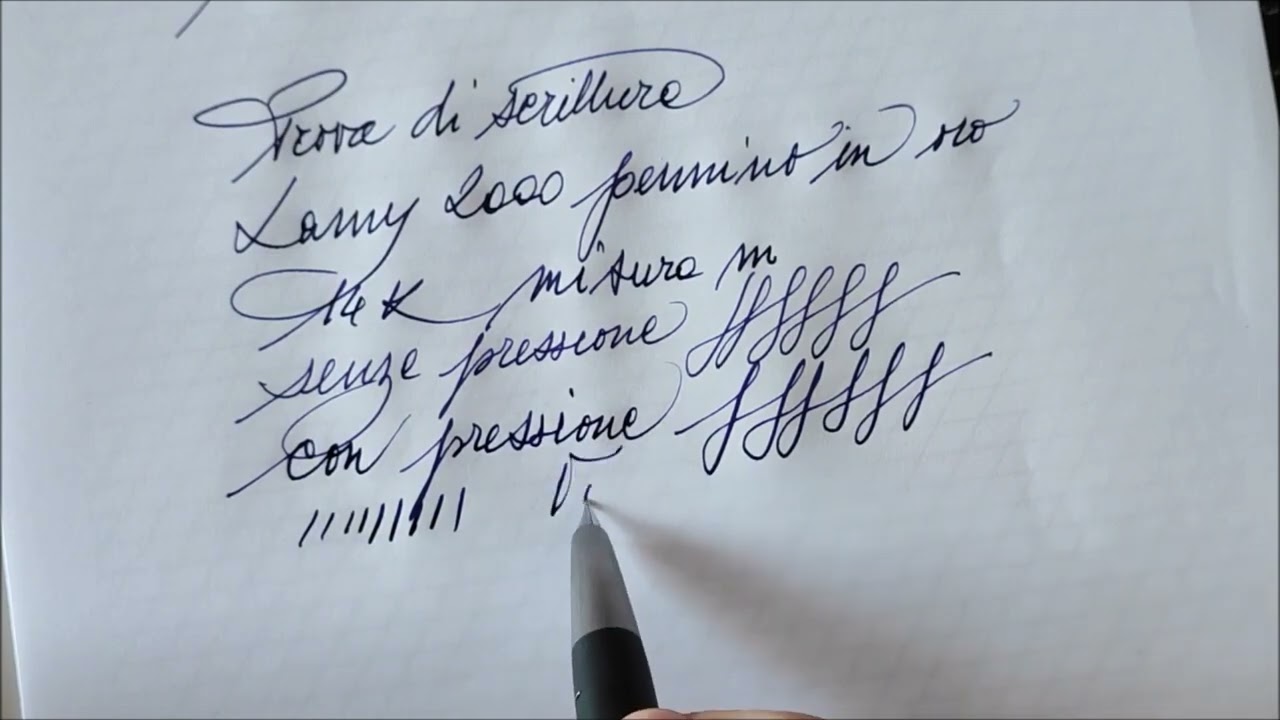 Prova di scrittura
Lamy 2000 pennino in oro
14K misura m
senza pressione fffff
con pressione ffffff